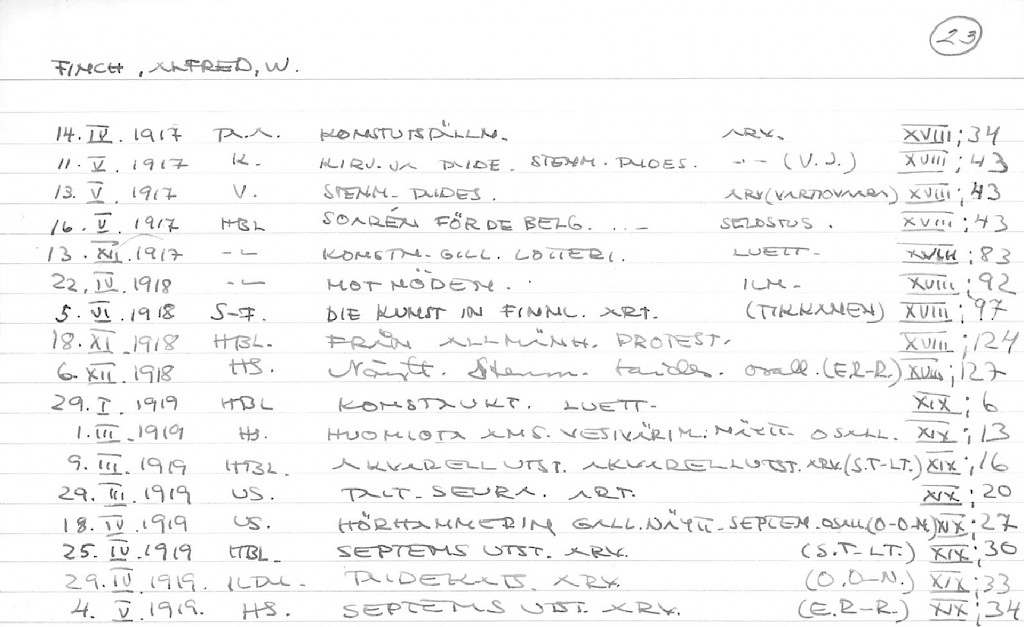 23
FINCH, ALFRED, W.
14. IV. 1917 D.A. KONSTUTSTÄLLN. ARV. XVIII; 34
11. V. 1917 K. KIRJ. JA TAIDE. STENM. TAIDES. -"- (V.J.) XVIII; 43
13. V. 1917 V. STENM. TAIDES. ARV (VARTIOVAARA) XVIII; 43
16. V. 1917 HBL SOARÉN FÖR DE BELG. ... SELOSTUS. XVIII; 43
13. XII. 1917 -"- KONSTN. GILL. LOTTERI. LUETT. XVIII; 83
22. IV. 1918 -"- MOT NÖDEN. ILM. XVIII; 92
5. VI. 1918 S-F. DIE KUNST IN FINNL. ART. (TIKKANEN) XVIII; 97
18. XI. 1918 HBL. FRÅN ALLMÄNH. PROTEST. XVIII; 124
6. XII. 1918 HS. Näytt. Stenm. taides. osall. (E.R-R.) XVIII; 127
29. I. 1919 HBL KONSTAUKT. LUETT. XIX; 6
1. III. 1919 HS. HUOMIOTA AMS. VESIVÄRIM. NÄYTT. OSALL. XIX; 13
9. III. 1919 HBL. AKVARELLUTST. AKVARELLUTST. ARV. (S.T-LT.) XIX; 16
29. III. 1919 US. TAIT. SEURA. ART. XIX; 20
18. IV. 1919 US. HÖRHAMMERIN GALL. NÄYTT. SEPTEM. OSALL (O-O-N) XIX; 27
25. IV 1919 HBL. SEPTEMS UTST. ARV. (S.T-LT.) XIX; 30
29. IV. 1919. ILTAL. TAIDEKATS. ARV. (O.O-N.) XIX; 33
4. V. 1919. HS. SEPTEMS UTST. ARV. (E.R-R.) XIX; 34